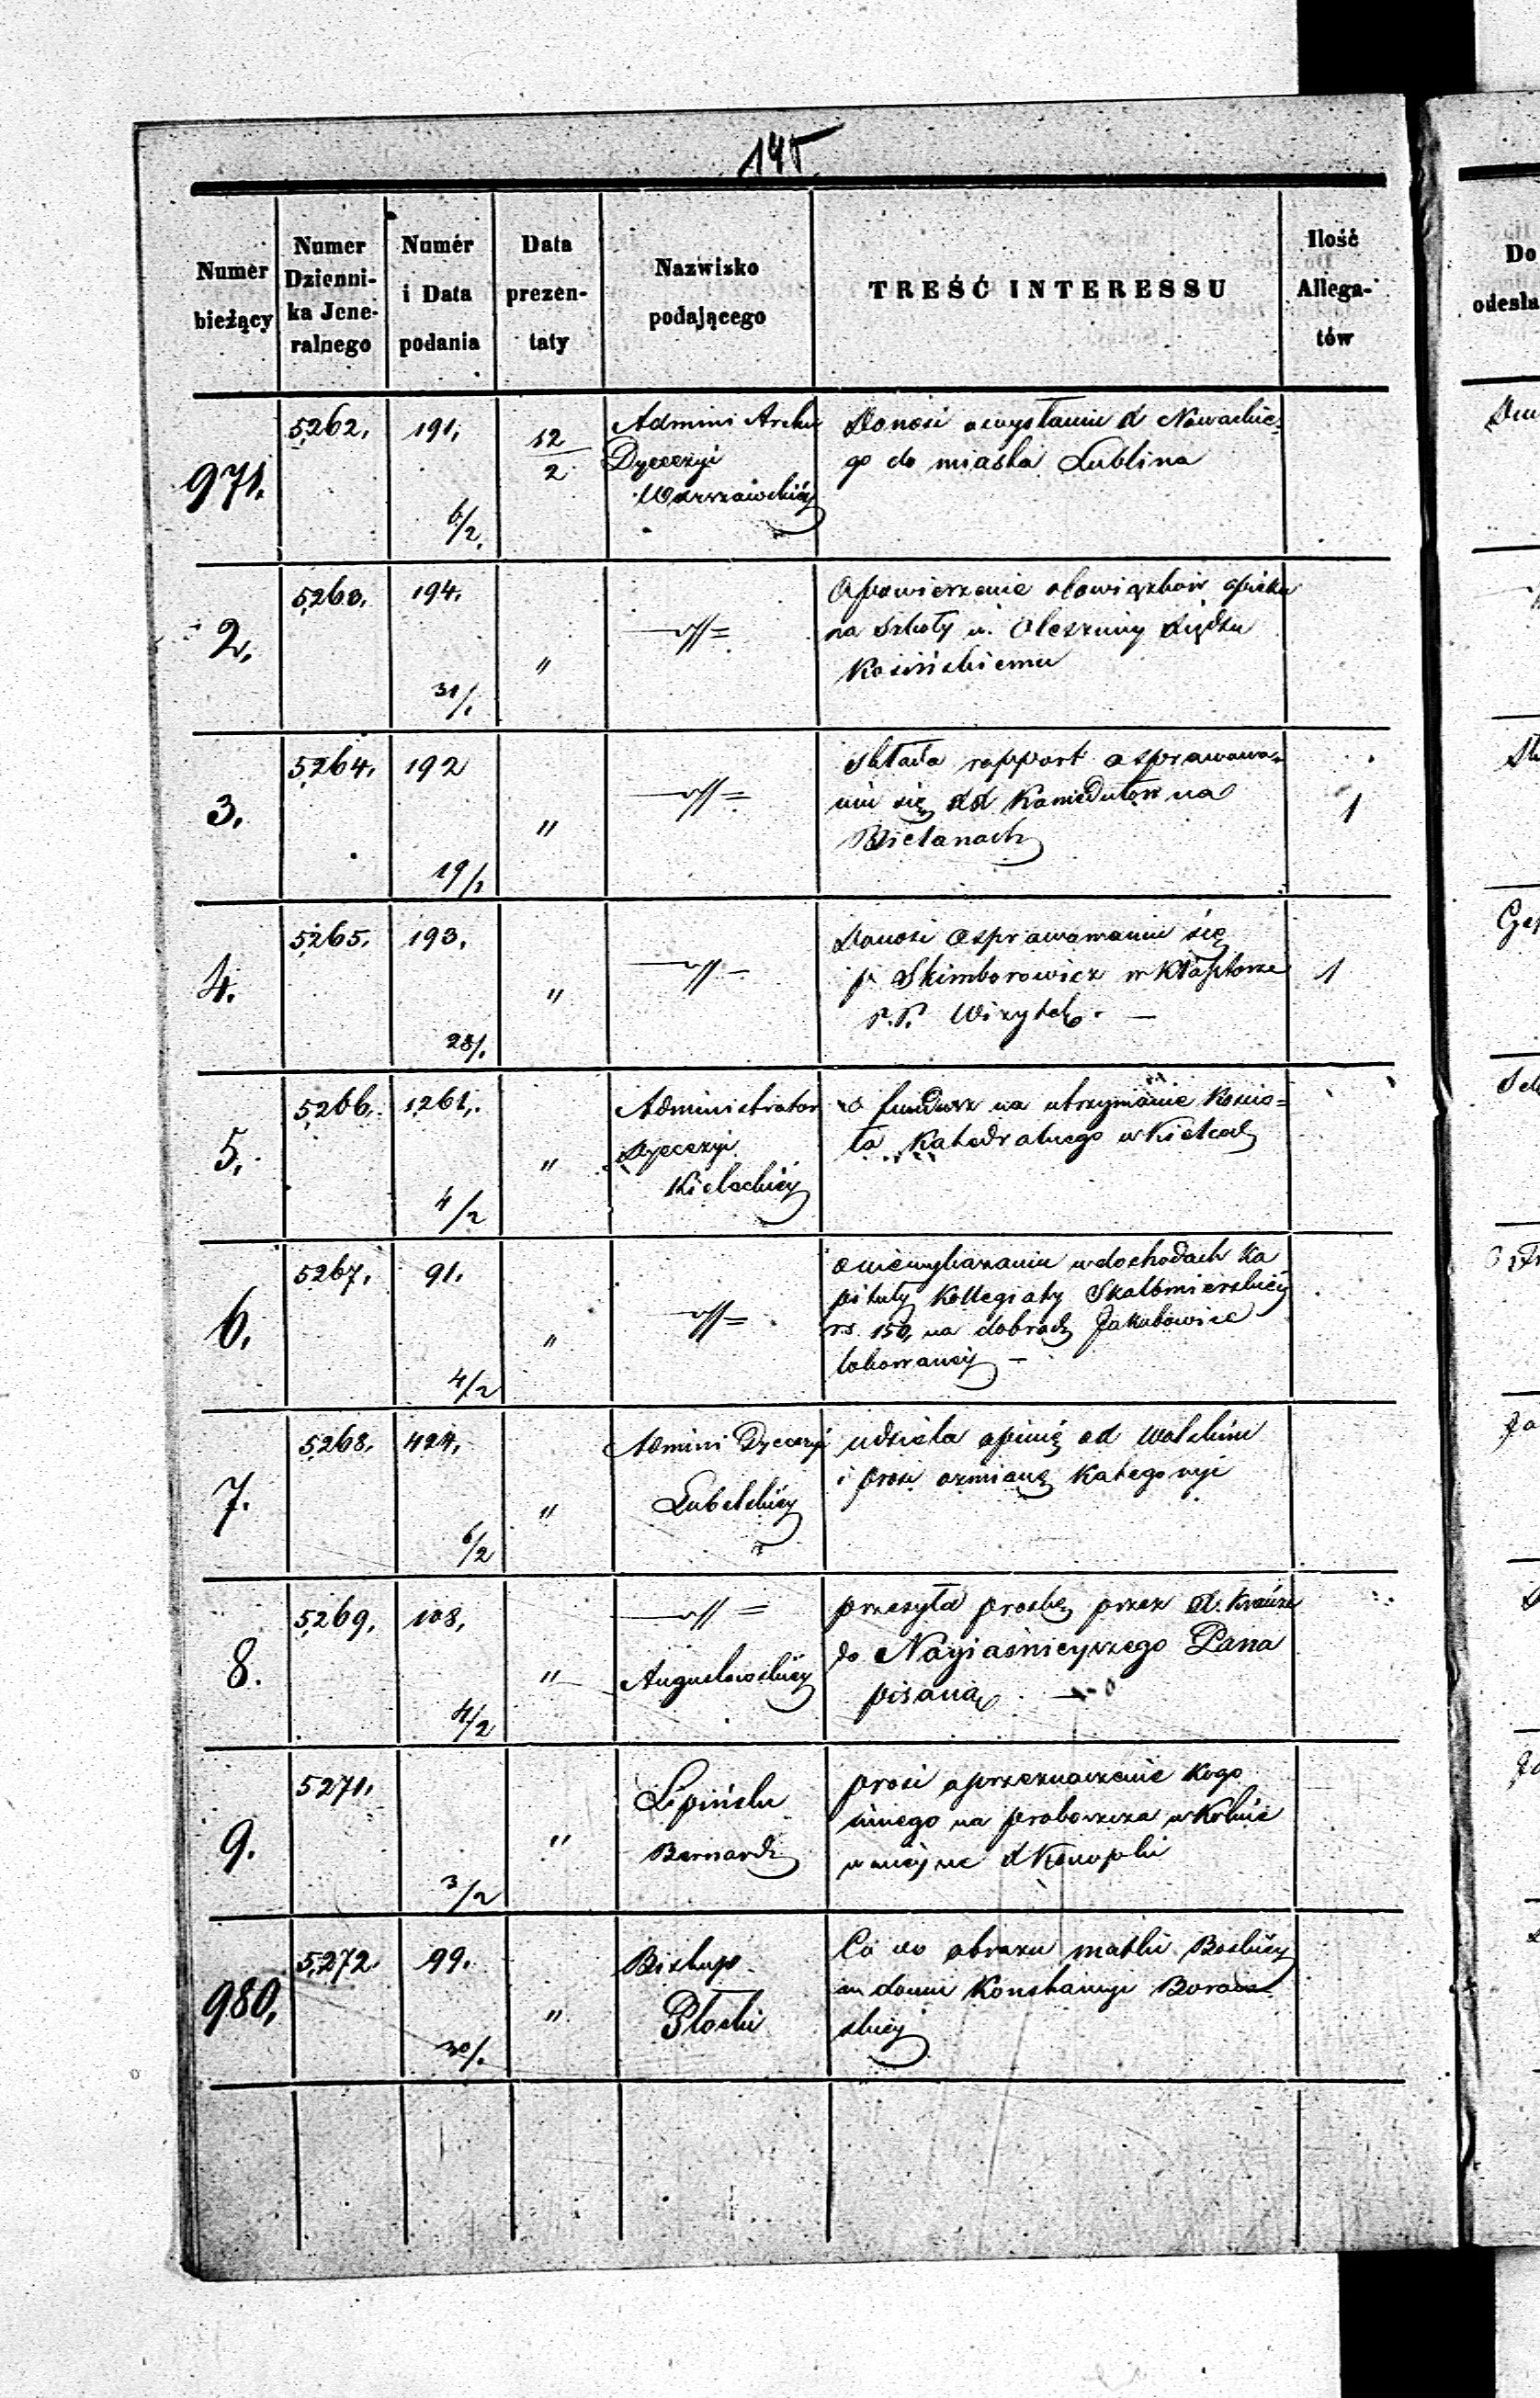 145
Numer bieżący
Numer Dzienni-
ka Jene-
ralnego
Numer i Data podania
Data prezen-
taty
Nazwisko podającego
TREŚĆ INTERESSU
Ilość Allega-
tów
971.
5262.
191.
6/2.
12/2
Admini Archi
Dyecezyi
Warszawskiéy
Donosi o wysłaniu X Nowackie-
go do miasta Lublina
2.
5263.
194.
31/1.
"
O powierzenie obowiązków opieku
na Szkoły w Olesznicy Xiędzu
Kosińskiemu
3.
5264.
192
19/1
"
Składa rapport o sprawowa-
niu się XX Kamedułów na
Bielanach
1
4.
5265.
193.
28/1.
"
Donosi o sprawowaniu się
p. Skimborowicz w Klasztorze
P.P. Wizytek. —
1
5.
5266.
1261.
4/2
"
Administrator
Dyecezyi
Kieleckiéy
o fundusz na utrzymanie Kościo-
ła Katedralnego w Kielcach
6.
5267.
91.
4/2
"
o niewykazaniu w dochodach Ka
pituły Kollegiaty Skalbmierskiéy
rs. 150, na dobrach Jakubowice
lokowanéy —
7.
5268.
424.
6/2
"
Admini Dyecezyi
Lubelskiéy
udziela opinię od Wolskim
i prosi o zmianę Kategoryi
8.
5269.
108.
4/2
"
Augustowskiéy
przesyła prośbę przez X. Krauze
do Nayjaśnieyszego Pana
pisaną
9.
5271.
3/2
"
Lipiński
Bernard
prosi o przeznaczenie kogo
innego na proboszcza w Kolnie
w miejsce X Konopki
980.
5272
99.
30/1.
"
Biskup
Płocki
Co do obrazu Matki Boskiéy
w domu Konstancyi Borow
skiéy
Do
odesła